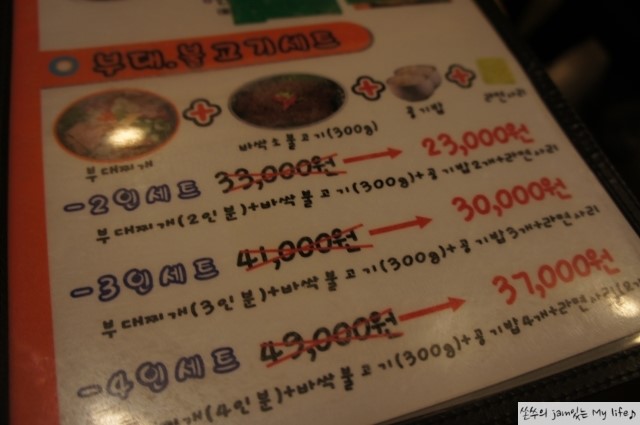 부대.불고기세트
부대찌개 + 바싹소불고기(300g) + 공기밥 + 라면사리
-2인세트 33,000원 → 23,000원
부대찌개(2인분)+바싹불고기(300g)+공기밥2개+라면사리
-3인세트 41,000원 → 30,000원
부대찌개(3인분)+바싹불고기(300g)+공기밥3개+라면사리
-4인세트 49,000원 → 37,000원
부대찌개(4인분)+바싹불고기(300g)+공기밥4개+라면사리(2개
쏠쑤의 jain있는 My life♪